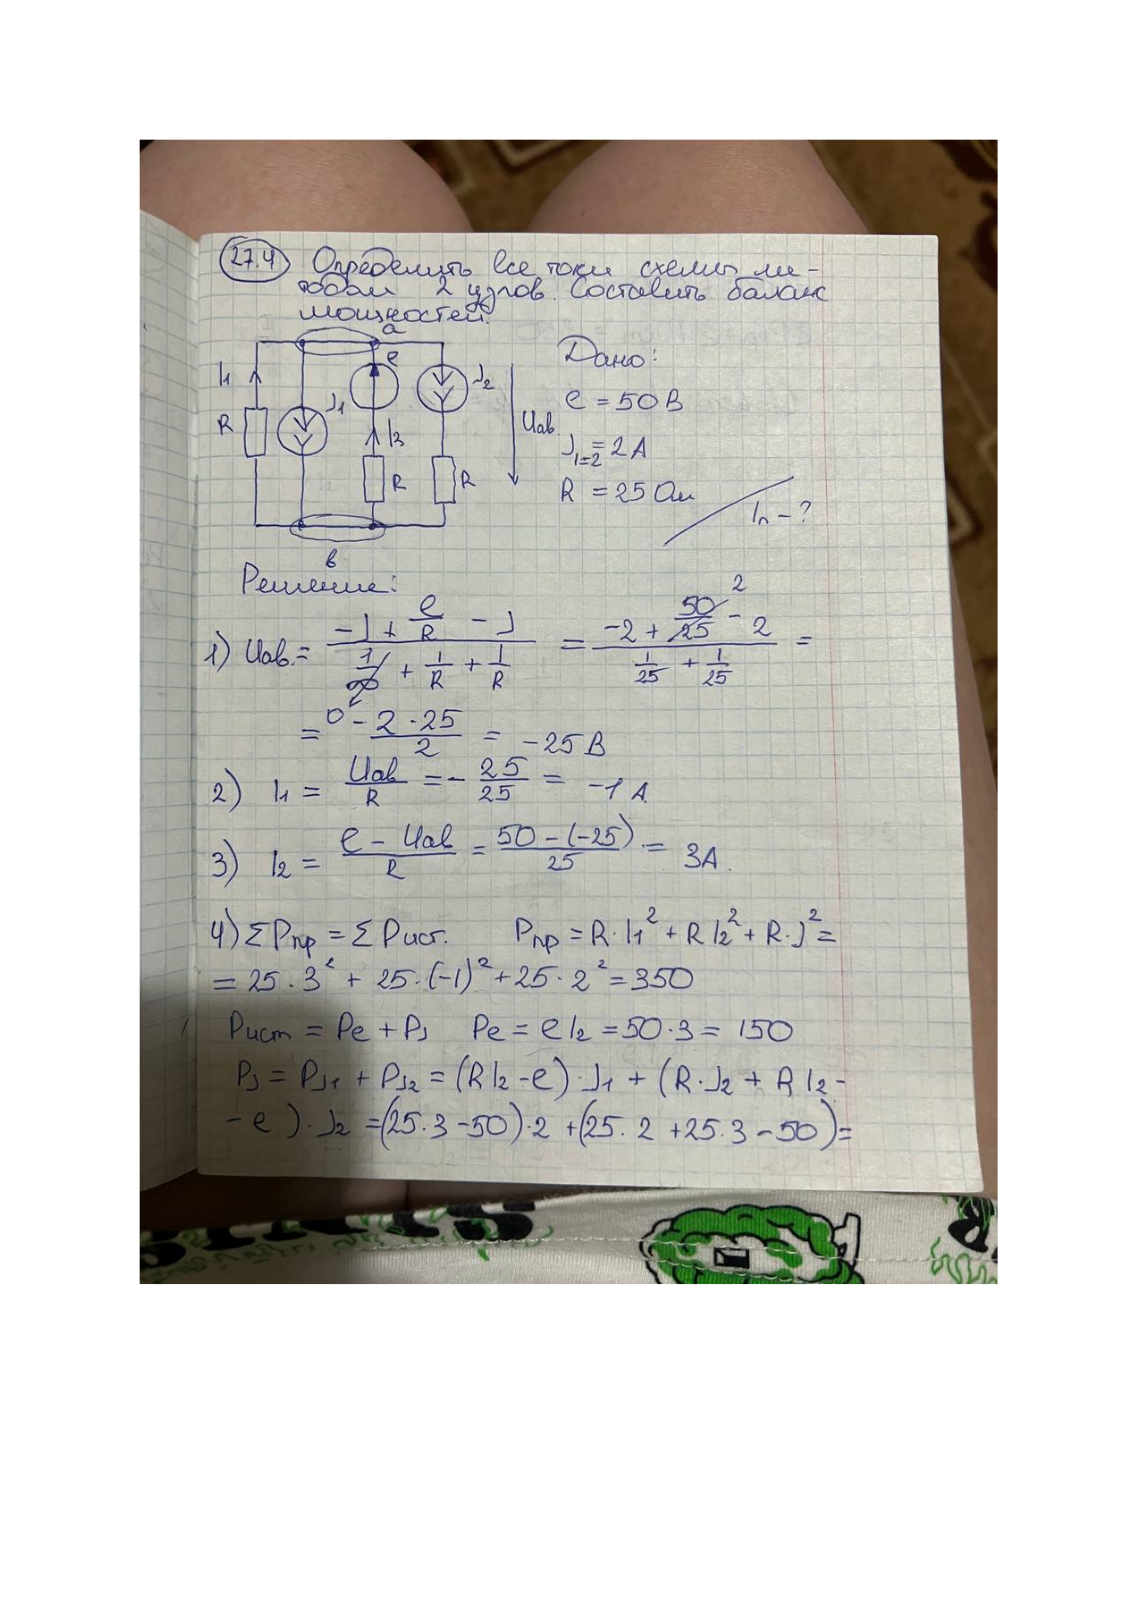 27.4 Определить все токи схемы ме-
тодом 2 узлов. Составить баланс
мощностей.
a
e
I1
J1
J2
R
I2
R
R
Uав
в
Дано:
e = 50 В
J1=2 = 2 А
R = 25 Ом
In - ?
Решение:
1) Uав. = (-J + e/R - J) / (1/∞ + 1/R + 1/R) = (-2 + 50/25 2 - 2) / (1/25 + 1/25) =
= - 2 · 25 / 2 = -25 В
2) I1 = Uав / R = - 25/25 = -1 А
3) I2 = (e - Uав) / R = (50 - (-25)) / 25 = 3А.
4) ΣPпр = ΣPист. Pпр = R·I1² + RI2² + R·J² =
= 25·3² + 25·(-1)² + 25·2² = 350
Pист = Pe + PJ Pe = eI2 = 50·3 = 150
PJ = PJ1 + PJ2 = (RI2 - e)·J1 + (R·J2 + RI2 -
- e)·J2 = (25·3 - 50)·2 + (25·2 + 25·3 - 50) =